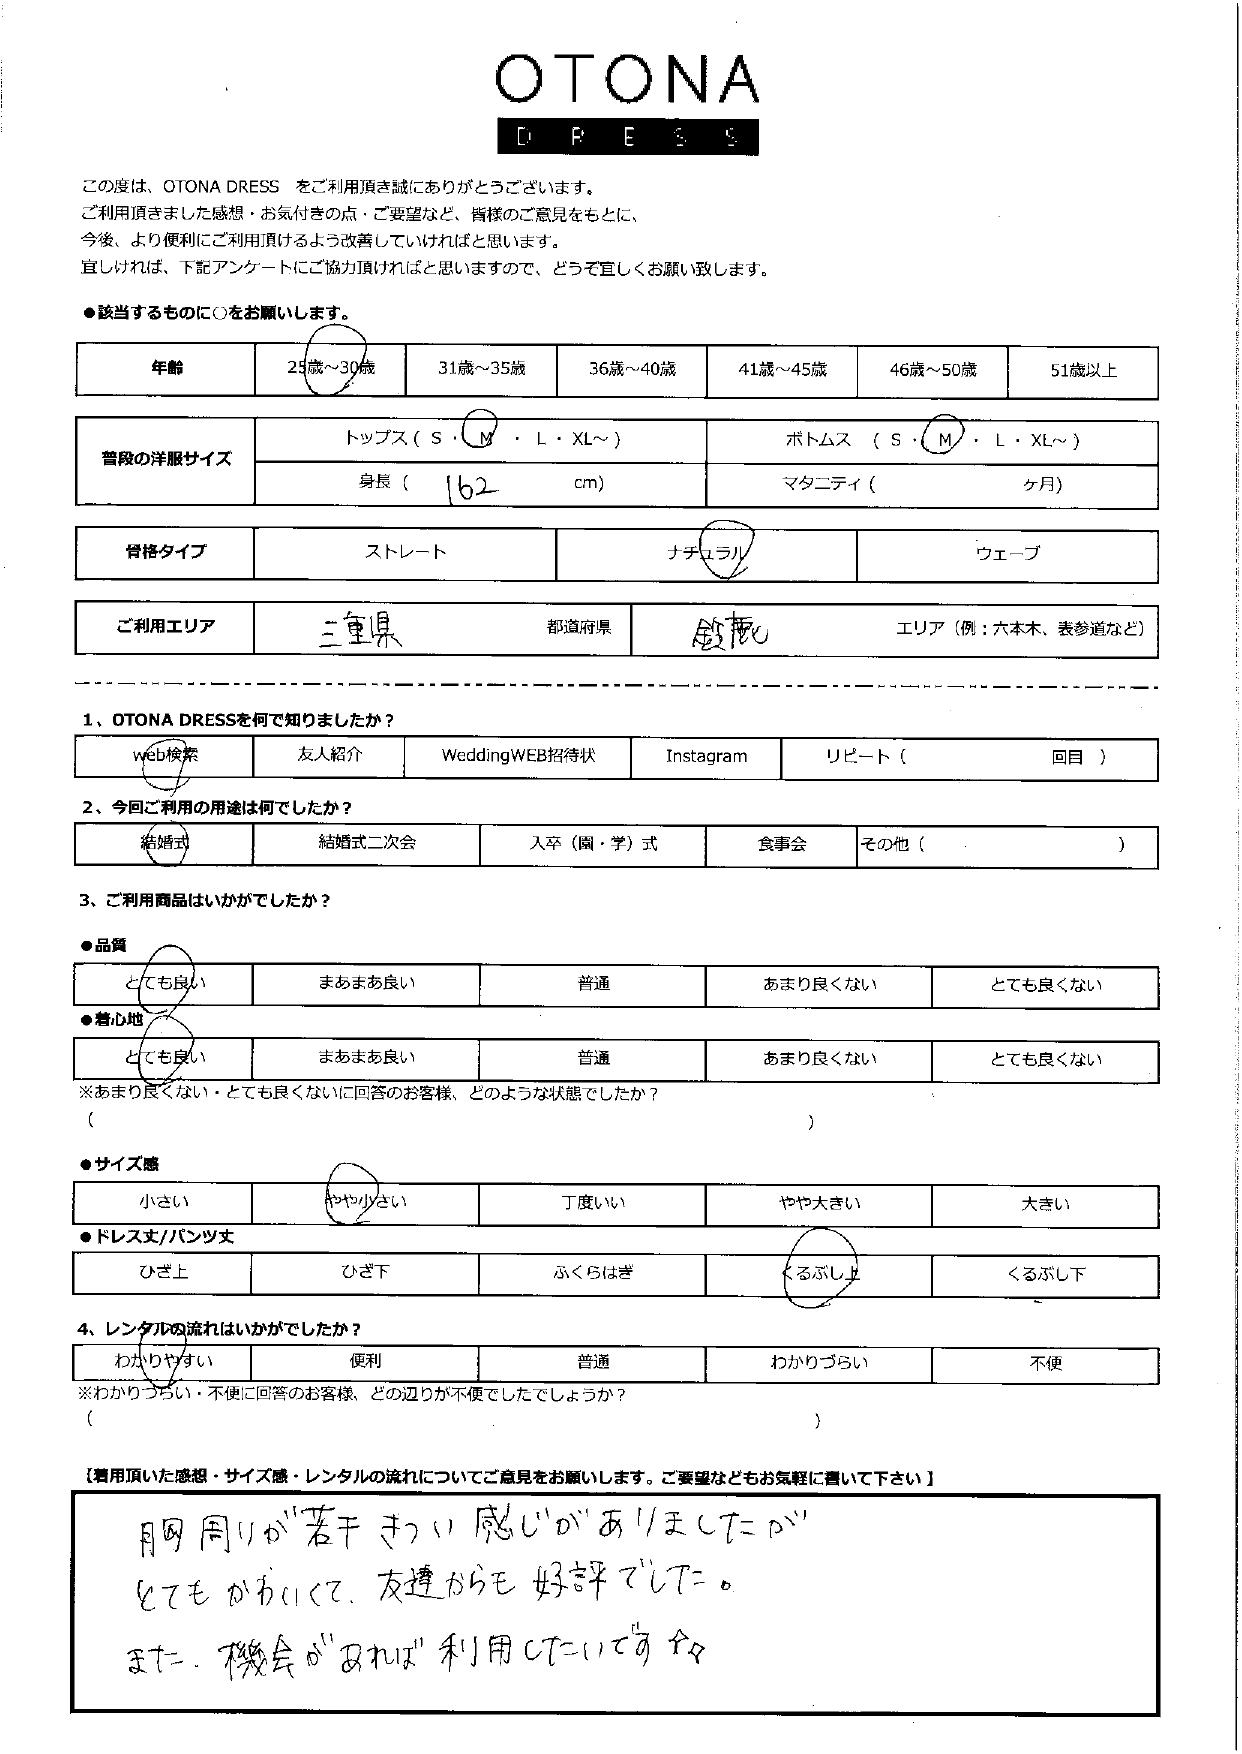 OTONA
DRESS
この度は、OTONA DRESS　をご利用頂き誠にありがとうございます。
ご利用頂きました感想・お気付きの点・ご要望など、皆様のご意見をもとに、
今後、より便利にご利用頂けるよう改善していければと思います。
宜しければ、下記アンケートにご協力頂ければと思いますので、どうぞ宜しくお願い致します。
●該当するものに○をお願いします。
年齢 25歳～30歳 31歳～35歳 36歳～40歳 41歳～45歳 46歳～50歳 51歳以上
普段の洋服サイズ トップス ( S ・ M ・ L ・ XL～ ) ボトムス ( S ・ M ・ L ・ XL～ )
身長 ( 162 cm) マタニティ ( ケ月)
骨格タイプ ストレート ナチュラル ウェーブ
ご利用エリア 三重県 都道府県 鈴鹿 エリア（例：六本木、表参道など）
1、OTONA DRESSを何で知りましたか？
web検索 友人紹介 WeddingWEB招待状 Instagram リピート ( 回目 )
2、今回ご利用の用途は何でしたか？
結婚式 結婚式二次会 入卒（園・学）式 食事会 その他 ( )
3、ご利用商品はいかがでしたか？
●品質
とても良い まあまあ良い 普通 あまり良くない とても良くない
●着心地
とても良い まあまあ良い 普通 あまり良くない とても良くない
※あまり良くない・とても良くないに回答のお客様、どのような状態でしたか？
( )
●サイズ感
小さい やや小さい 丁度いい やや大きい 大きい
●ドレス丈/パンツ丈
ひざ上 ひざ下 ふくらはぎ くるぶし上 くるぶし下
4、レンタルの流れはいかがでしたか？
わかりやすい 便利 普通 わかりづらい 不便
※わかりづらい・不便に回答のお客様、どの辺りが不便でしたでしょうか？
( )
【着用頂いた感想・サイズ感・レンタルの流れについてご意見をお願いします。ご要望などもお気軽に書いて下さい】
胸周りが若干きつい感じがありましたが
とてもかわいくて、友達からも好評でした。
また、機会があれば利用したいです☆☆